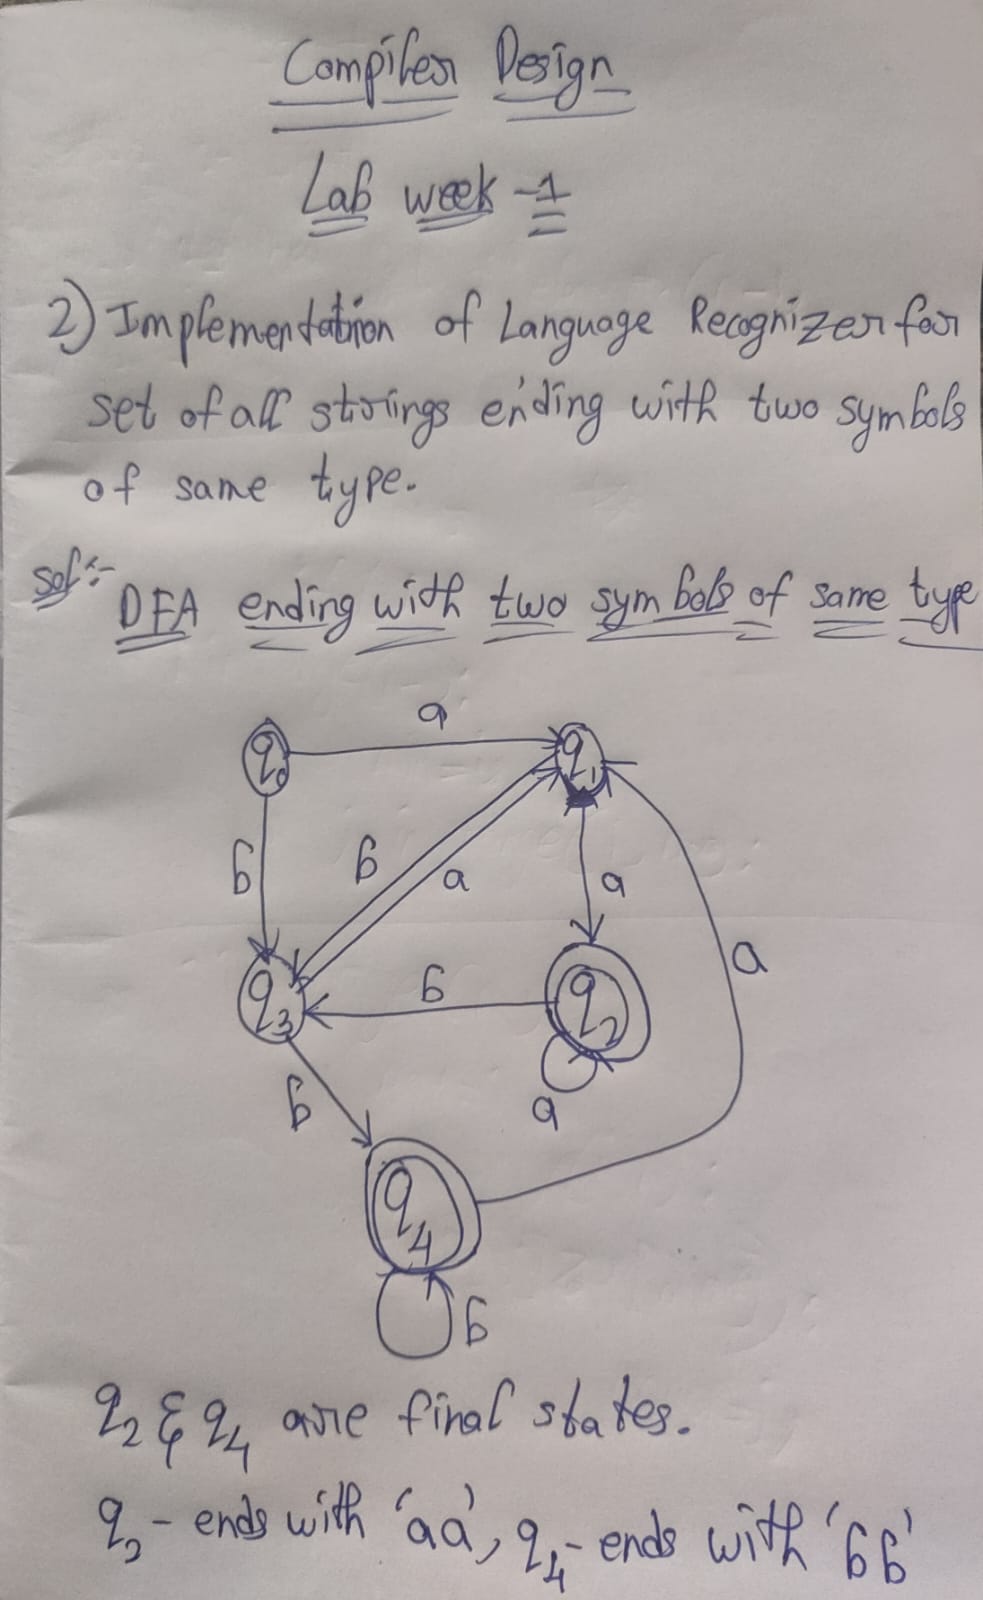 Compiler Design
Lab week -1
2) Implementation of Language Recognizer for
set of all strings ending with two symbols
of same type.
sol:- DFA ending with two symbols of same type
a
q0
q1
b
b
a
a
a
q3
b
q2
b
a
q4
b
q2 & q4 are final states.
q2 - ends with 'aa', q4 - ends with 'bb'